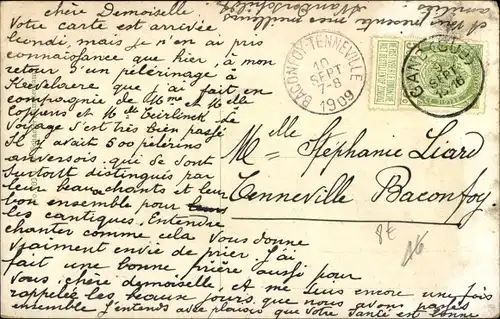 chère Demoiselle.
Votre carte est arrivée
lundi, mais je n'en ai pris
connaissance que hier, à mon
retour d'un pèlerinage à
Kevelaere que j'ai fait, en
compagnie de Mme et Melle
Coppens et Mlle Teirlinck. Le
voyage s'est très bien passé
Il y avait 500 pèlerins
anversois qui se sont
surtout distingués par
leur beaux chants et leur
bon ensemble pour
les cantiques. Entendre
chanter comme cela vous donne
vraiment envie de prier. J'ai
fait une bonne prière aussi pour
vous, chère demoiselle, et me suis encore une fois
rappelée les beaux jours que nous avons passés
ensemble. J'entends avec plaisir que votre santé est bonne
BACONFOY-TENNEVILLE
10
SEPT
7-8
1909
GAND
SEPT
Melle Stéphanie Liard
Tenneville Baconfoy
8€